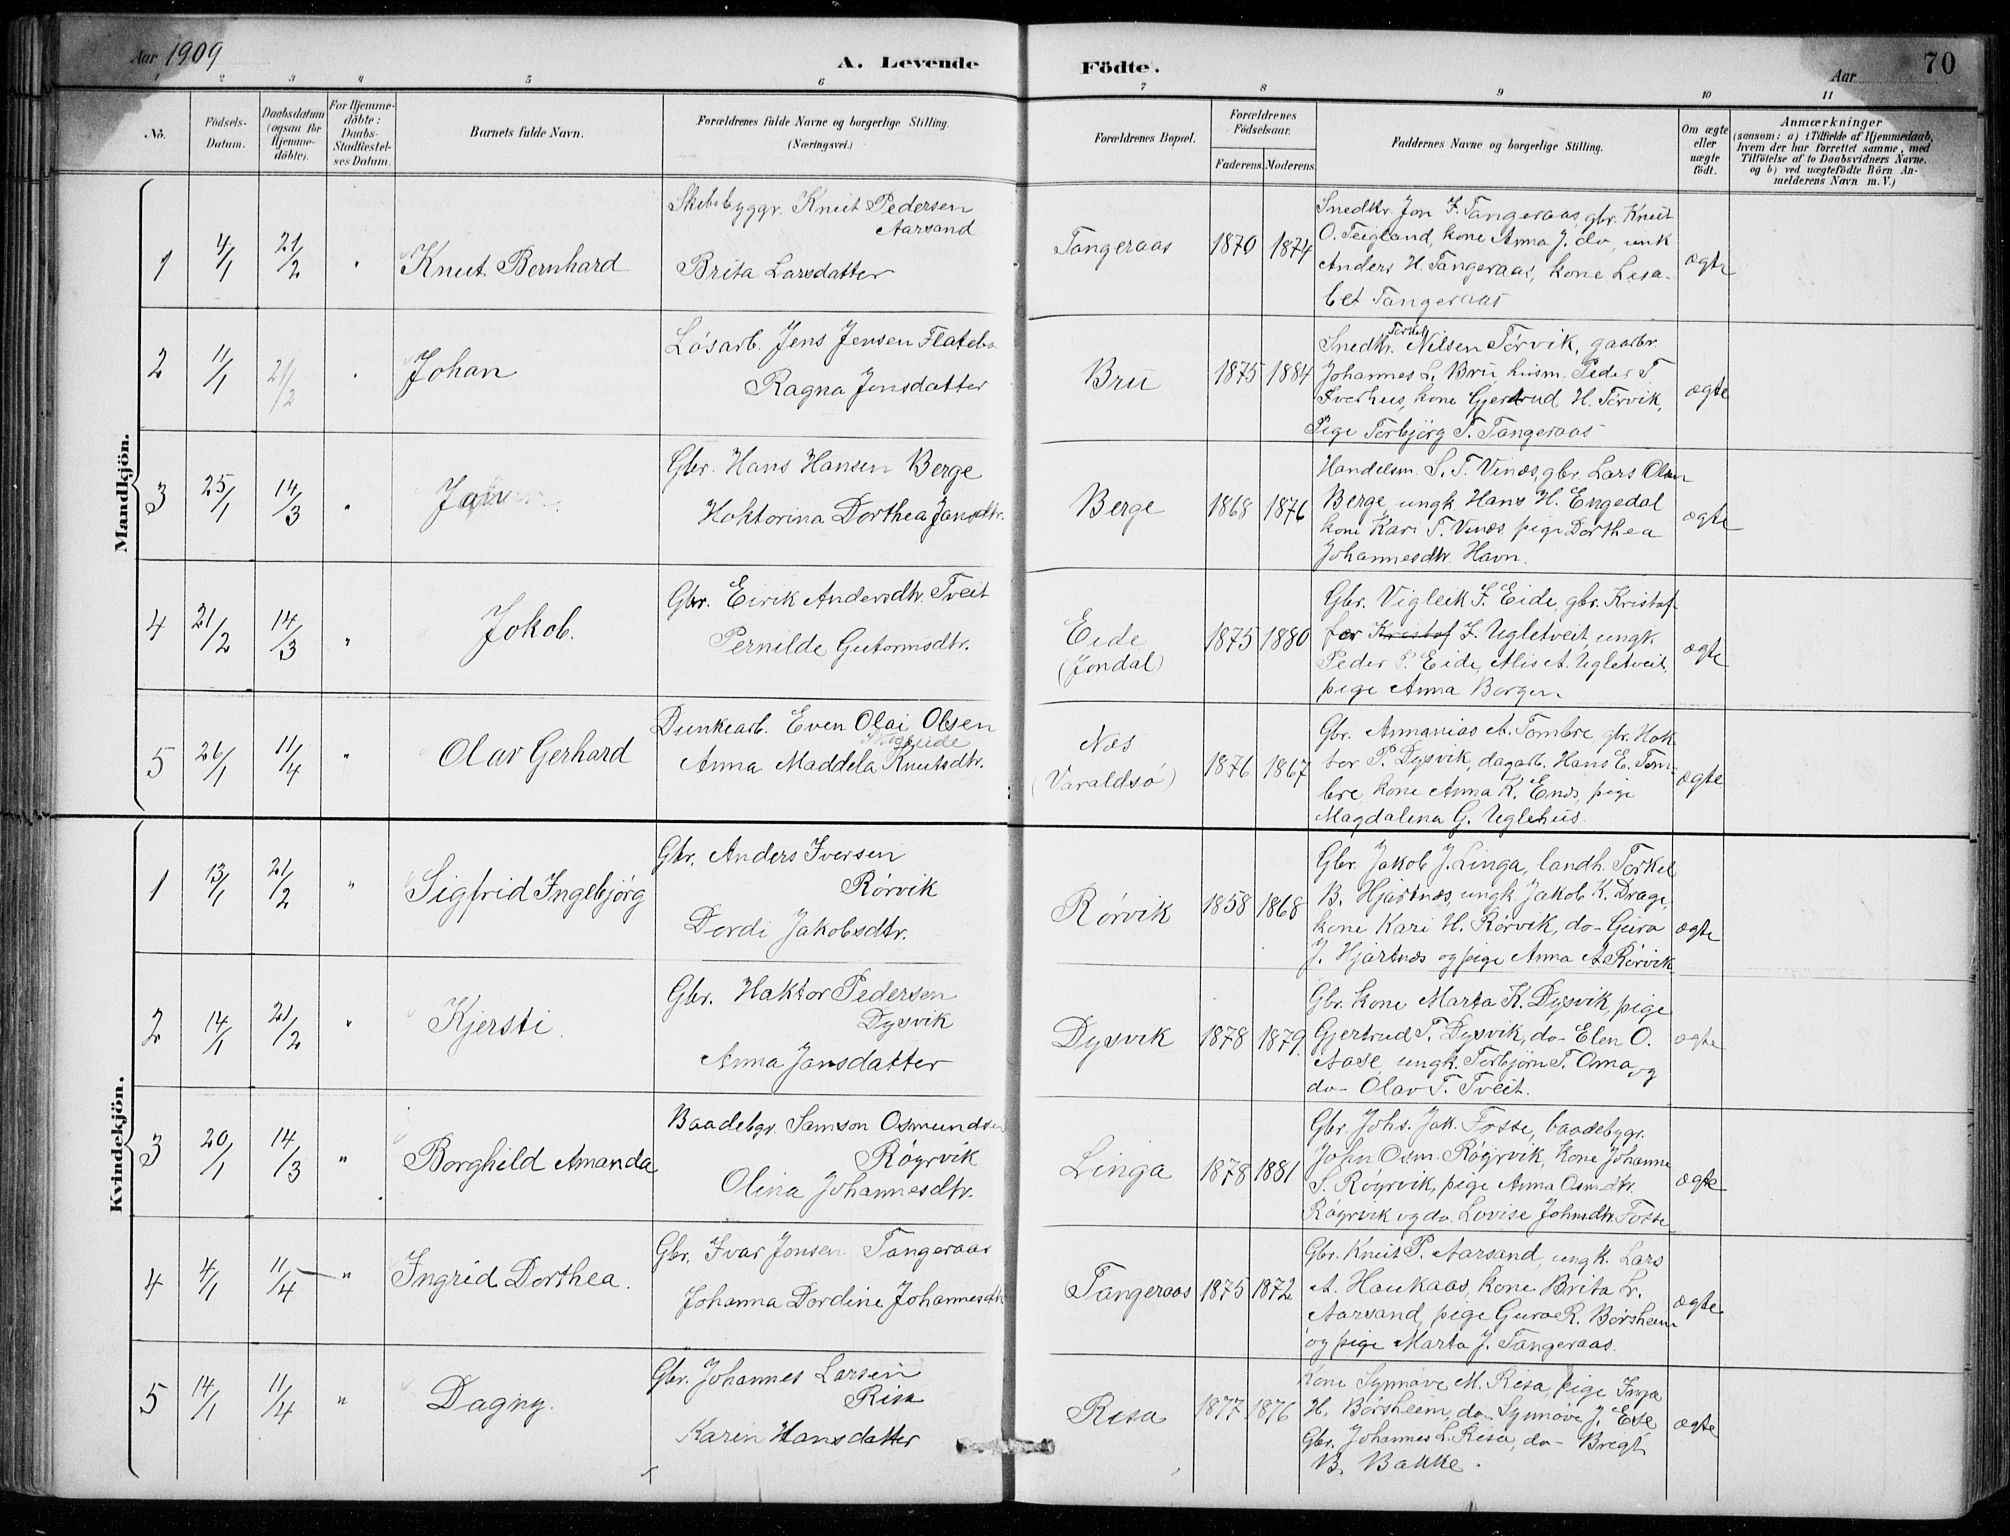 Aar 1909
A. Levende Födte.
Aar
70
1 2 3 4 5 6 7 8 9 10 11
No.
Födsels-
Datum.
Daabsdatum
(ogsaa for
Hjemme-
döbte).
For Hjemme-
döbte:
Daabs-
Stadfæstel-
ses Datum.
Barnets fulde Navn.
Forældrenes fulde Navne og borgerlige Stilling.
(Næringsvei.)
Forældrenes Bopæl.
Forældrenes
Födselsaar.
Faderens Moderens
Faddernes Navne og borgerlige Stilling.
Om ægte
eller
uægte
födt.
Anmærkninger
(saasom: a) i Tilfælde af Hjemmedaab,
hvem der har forrettet samme, med
Tilföielse af to Daabsvidners Navne.
og b) ved uægtefödte Börn An-
melderens Navn m. V.)
Mandkjön.
1 4/1 21/2 " Knut Bernhard
Skibsbyggr. Knut Pedersen
Aarsand
Brita Larsdatter
Tangeraas 1870 1874
Snedkr. Jon I. Tangeraas, gbr. Knut
O. Teigland, kone Anna J. do, unk
Anders H. Tangeraas, kone Lisa-
bet Tangeraas
ægte
2 11/1 21/2 " Johan
Løsarb. Jens Jensen Flatebø
Ragna Jonsdatter
Bru 1875 1884
Torkel
Snedkr. Nilsen Tørvik, gaarbr.
Johannes L. Bru husm. Peder T
Sverhus, kone Gjertrud H. Tørvik,
Pige Torbjörg T. Tangeraas
ægte
3 25/1 14/3 "
Gbr. Hans Hansen Berge
Hoktorina Dorthea Jansdtr.
Berge 1868 1876
Handelsm. S. T. Vinæs, gbr. Lars Olsen
Berge, ungk. Hans H. Engedal
kone Kari T. Vinæs, pige Dorthea
Johannesdtr. Havn.
ægte
4 21/2 14/3 " Jokob.
Gbr. Eirik Andersdtr. Tveit
Pernilde Gutormsdtr.
Eide
(Jondal)
1875 1880
Gbr. Vigleik I. Eide, gbr. Kristof-
fer Kristof I. Ugletveit, ungk.
Peder P. Eide, Alis A. Ugletveit,
pige Anna Borgen
ægte
5 26/1 11/4 " Olav Gerhard
Dunkearb. Even Olai Olsen
Anna Maddela Knutsdtr.
Næs
(Varaldsö)
1876 1867
Gbr. Annanias A. Tombre, gbr. Hok-
tor P. Dysvik, dagarb. Hans E. Tom-
bre, kone Anna K. Enæs, pige
Magdalena G. Uglehus.
ægte
Kvindekjön.
1 13/1 21/2 " Sigfrid Ingebjörg
Gbr. Anders Iversen
Rørvik
Dordi Jakobsdtr.
Rørvik 1858 1868
Gbr. Jakob J. Linga, landh. Torkel
B. Hjartnæs, ungk. Jakob K. Drage,
kone Kari H. Rørvik, do- Guro
J. Hjartnæs og pige Anna A. Rørvik
ægte
2 14/1 21/2 " Kjersti.
Gbr. Haktor Pedersen
Dysvik
Anna Jansdatter
Dysvik 1878 1879.
Gbr. kone Marta K. Dysvik, pige
Gjertrud T. Dysvik, do- Elen O.
Aase, ungk. Torbjørn T. Oma og
do- Olav T. Tveit.
ægte
3 20/1 14/3 " Borghild Amanda
Baadebgr. Samson Osmundsen
Røyrvik
Olina Johannesdtr.
Linga 1878 1881
Gbr. Johs. Jak. Fosse, baadebygr.
John Osm. Røyrvik, kone Johanne
S. Røyrvik, pige Anna Osmdtr.
Røyrvik og do. Lovise Johnsdtr. Fosse
ægte
4 4/1 11/4 " Ingrid Dorthea.
Gbr. Ivar Jonsen Tangeraas
Johanna Dordine Johannesdtr
Tangeraas 1875 1872
Gbr. Knut P. Aarsand, ungk. Lars
A. Haukaas, kone Brita L.
Aarsand, pige Guro R. Børsheim
og pige Marta J. Tangeraas.
ægte
5 14/1 11/4 " Dagny.
Gbr. Johannes Larsen
Risa
Karin Hansdatter
Risa 1877 1876
Kone Synnøve M. Risa, pige Inga
H. Børsheim, do- Synnøve J. Ese
Gbr. Johannes L. Risa, do- Bregt
B. Bakke.
ægte